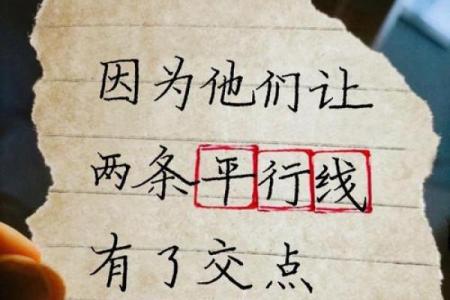 因为他们让
两条平行线
有了交点